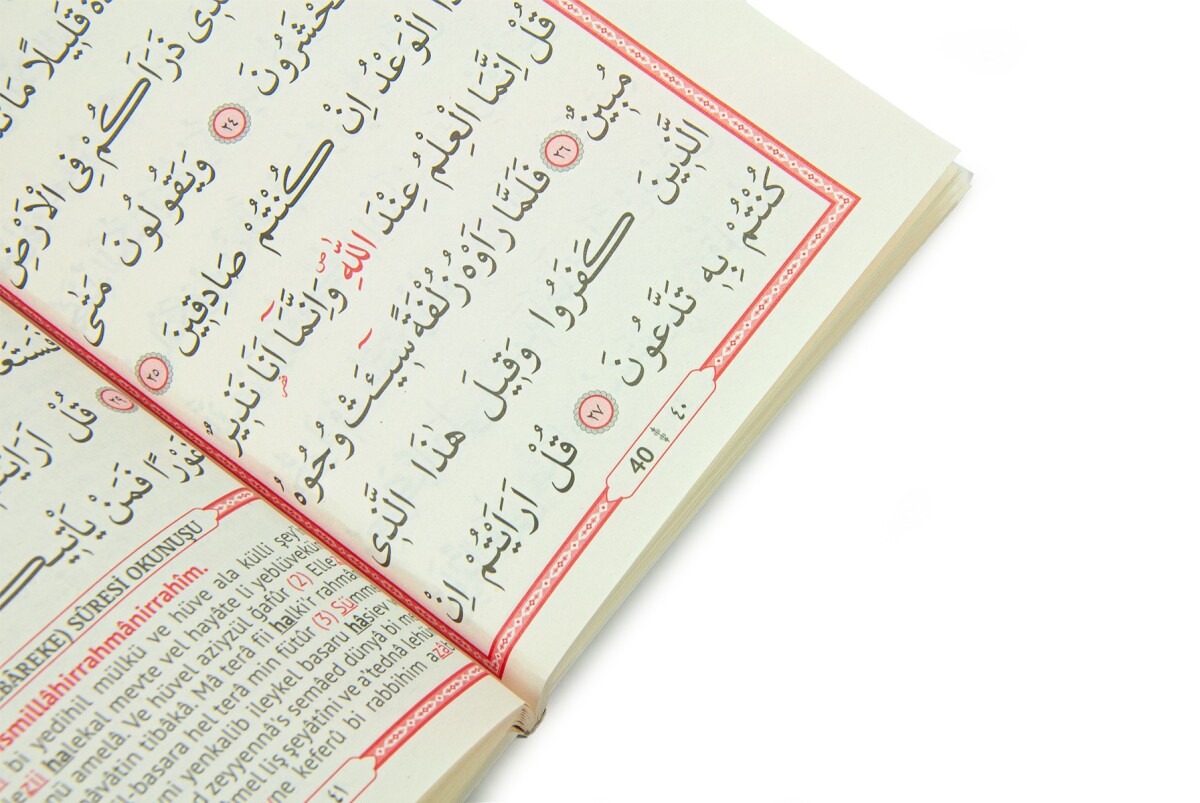 قَلِيلًا مَا
ذَرَاَكُمْ فِى الْاَرْضِ
تُحْشَرُونَ ٢٤ وَيَقُولُونَ مَتٰى
الْوَعْدُ اِنْ كُنْتُمْ صَادِقِينَ ٢٥
قُلْ اِنَّمَا الْعِلْمُ عِنْدَ اللّٰهِ ۖ وَاِنَّمَٓا اَنَا۬ نَذِيرٌ
مُبِينٌ ٢٦ فَلَمَّا رَاَوْهُ زُلْفَةً سِٓيـَٔتْ وُجُوهُ
الَّذِينَ كَفَرُوا وَقِيلَ هٰذَا الَّذِى
كُنْتُمْ بِهِ تَدَّعُونَ ٢٧ قُلْ اَرَاَيْتُمْ اِنْ
40 ٤٠
٢٩ قُلْ
غَوْرًا فَمَنْ
BÂREKE) SÛRESİ OKUNUŞU
smillâhirrahmânirrahîm.
bi yedihil mülkü ve hüve ala külli şey
halekal mevte vel hayâte li yeblüvekü
amelâ. Ve hüvel aziyzül ğafûr (2) Ellez
tibâkâ. Mâ terâ fii halkı'r rahmâ
basara hel terâ min fütûr (3) Sümm
yenkalib ileykel basaru hâsiev
zeyyennâ's semâed dünyâ bi me
liş şeyâtîni ve a'tednâ lehü
keferû bi rabbihim azâb
٤١